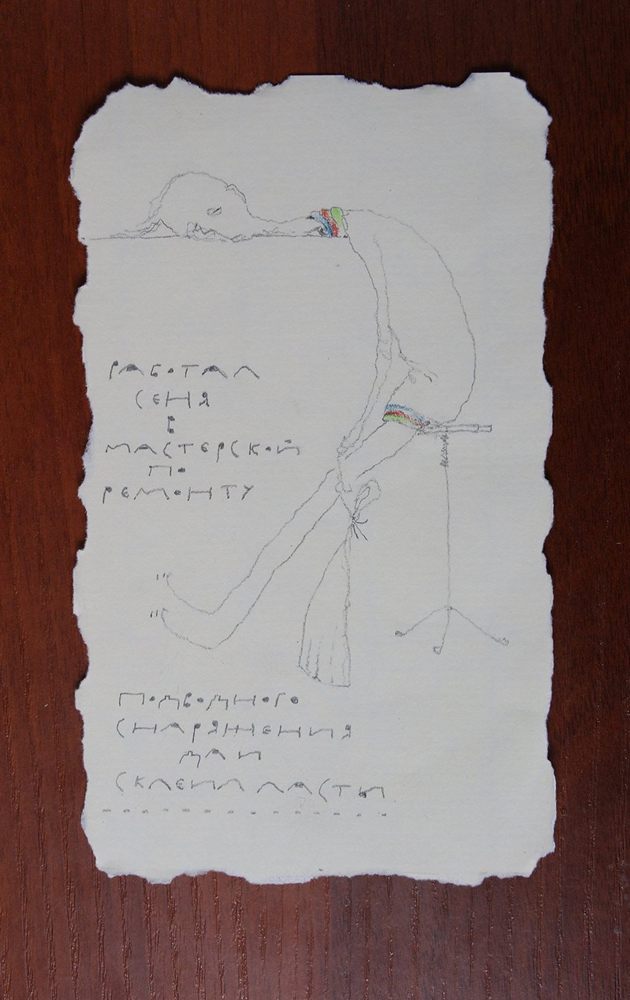 РАБОТАЛ
СЕНЯ
В
МАСТЕРСКОЙ
ПО
РЕМОНТУ
ПОДВОДНОГО
СНАРЯЖЕНИЯ
ДА И
СКЛЕИЛ ЛАСТЫ